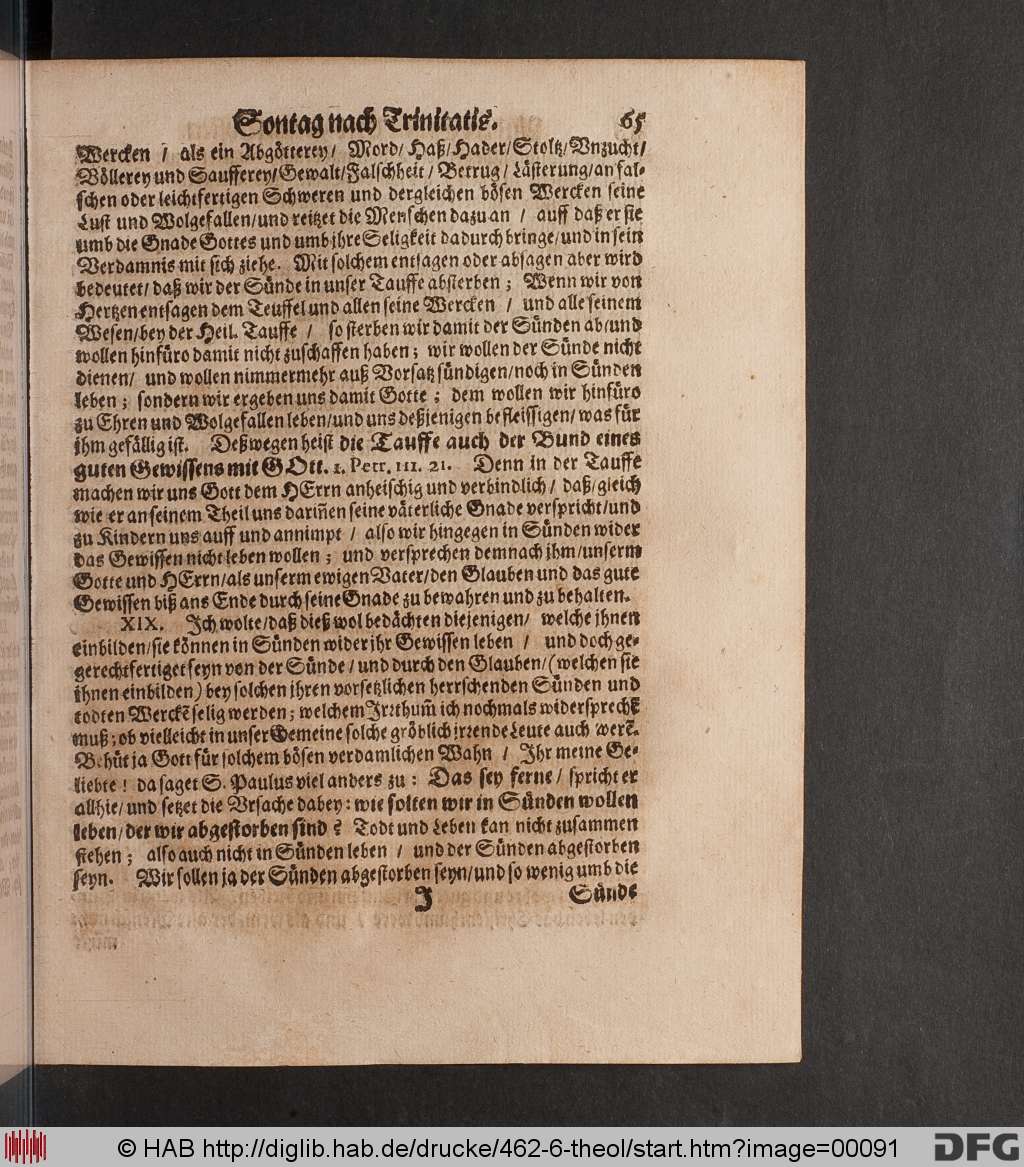 Sontag nach Trinitatis. 65
Wercken / als ein Abgötterey / Mord / Haß / Hader / Stoltz / Vnzucht /
Völlerey und Saufferey / Gewalt / Falschheit / Betrug / Lästerung / an fal-
schen oder leichtfertigen Schweren und dergleichen bösen Wercken seine
Lust und Wolgefallen / und reitzet die Menschen dazu an / auff daß er sie
umb die Gnade Gottes und umb jhre Seligkeit dadurch bringe / und in sein
Verdamnis mit sich ziehe. Mit solchem entsagen oder absagen aber wird
bedeutet / daß wir der Sünde in unser Tauffe absterben ; Wenn wir von
Hertzen entsagen dem Teuffel und allen seine Wercken / und alle seinem
Wesen / bey der Heil. Tauffe / so sterben wir damit der Sünden ab / und
wollen hinfüro damit nicht zuschaffen haben ; wir wollen der Sünde nicht
dienen / und wollen nimmermehr auß Vorsatz sündigen / noch in Sünden
leben ; sondern wir ergeben uns damit Gotte ; dem wollen wir hinfüro
zu Ehren und Wolgefallen leben / und uns deßjenigen befleissigen / was für
jhm gefällig ist. Deßwegen heist die Tauffe auch der Bund eines
guten Gewissens mit GOtt. 1. Petr. III. 21. Denn in der Tauffe
machen wir uns Gott dem HErrn anheischig und verbindlich / daß / gleich
wie er an seinem Theil uns dariñen seine väterliche Gnade verspricht / und
zu Kindern uns auff und annimpt / also wir hingegen in Sünden wider
das Gewissen nicht leben wollen ; und versprechen demnach jhm / unserm
Gotte und HErrn / als unserm ewigen Vater / den Glauben und das gute
Gewissen biß ans Ende durch seine Gnade zu bewahren und zu behalten.
XIX. Jch wolte / daß dieß wol bedächten diejenigen / welche jhnen
einbilden / sie können in Sünden wider jhr Gewissen leben / und doch ge-
gerechtfertiget seyn von der Sünde / und durch den Glauben / (welchen sie
ihnen einbilden) bey solchen jhren vorsetzlichen herrschenden Sünden und
todten Werckẽ selig werden ; welchem Jrzthum̃ ich nochmals widersprechẽ
muß ; ob vielleicht in unser Gemeine solche gröblich jrrende Leute auch werẽ.
Behüt ja Gott für solchem bösen verdamlichen Wahn / Jhr meine Ge-
liebte ! da saget S. Paulus viel anders zu : Das sey ferne / spricht er
allhie / und setzet die Vrsache dabey : wie solten wir in Sünden wollen
leben / der wir abgestorben sind ? Todt und Leben kan nicht zusammen
stehen ; also auch nicht in Sünden leben / und der Sünden abgestorben
seyn. Wir sollen ja der Sünden abgestorben seyn / und so wenig umb die
J Sünde
© HAB http://diglib.hab.de/drucke/462-6-theol/start.htm?image=00091 DFG